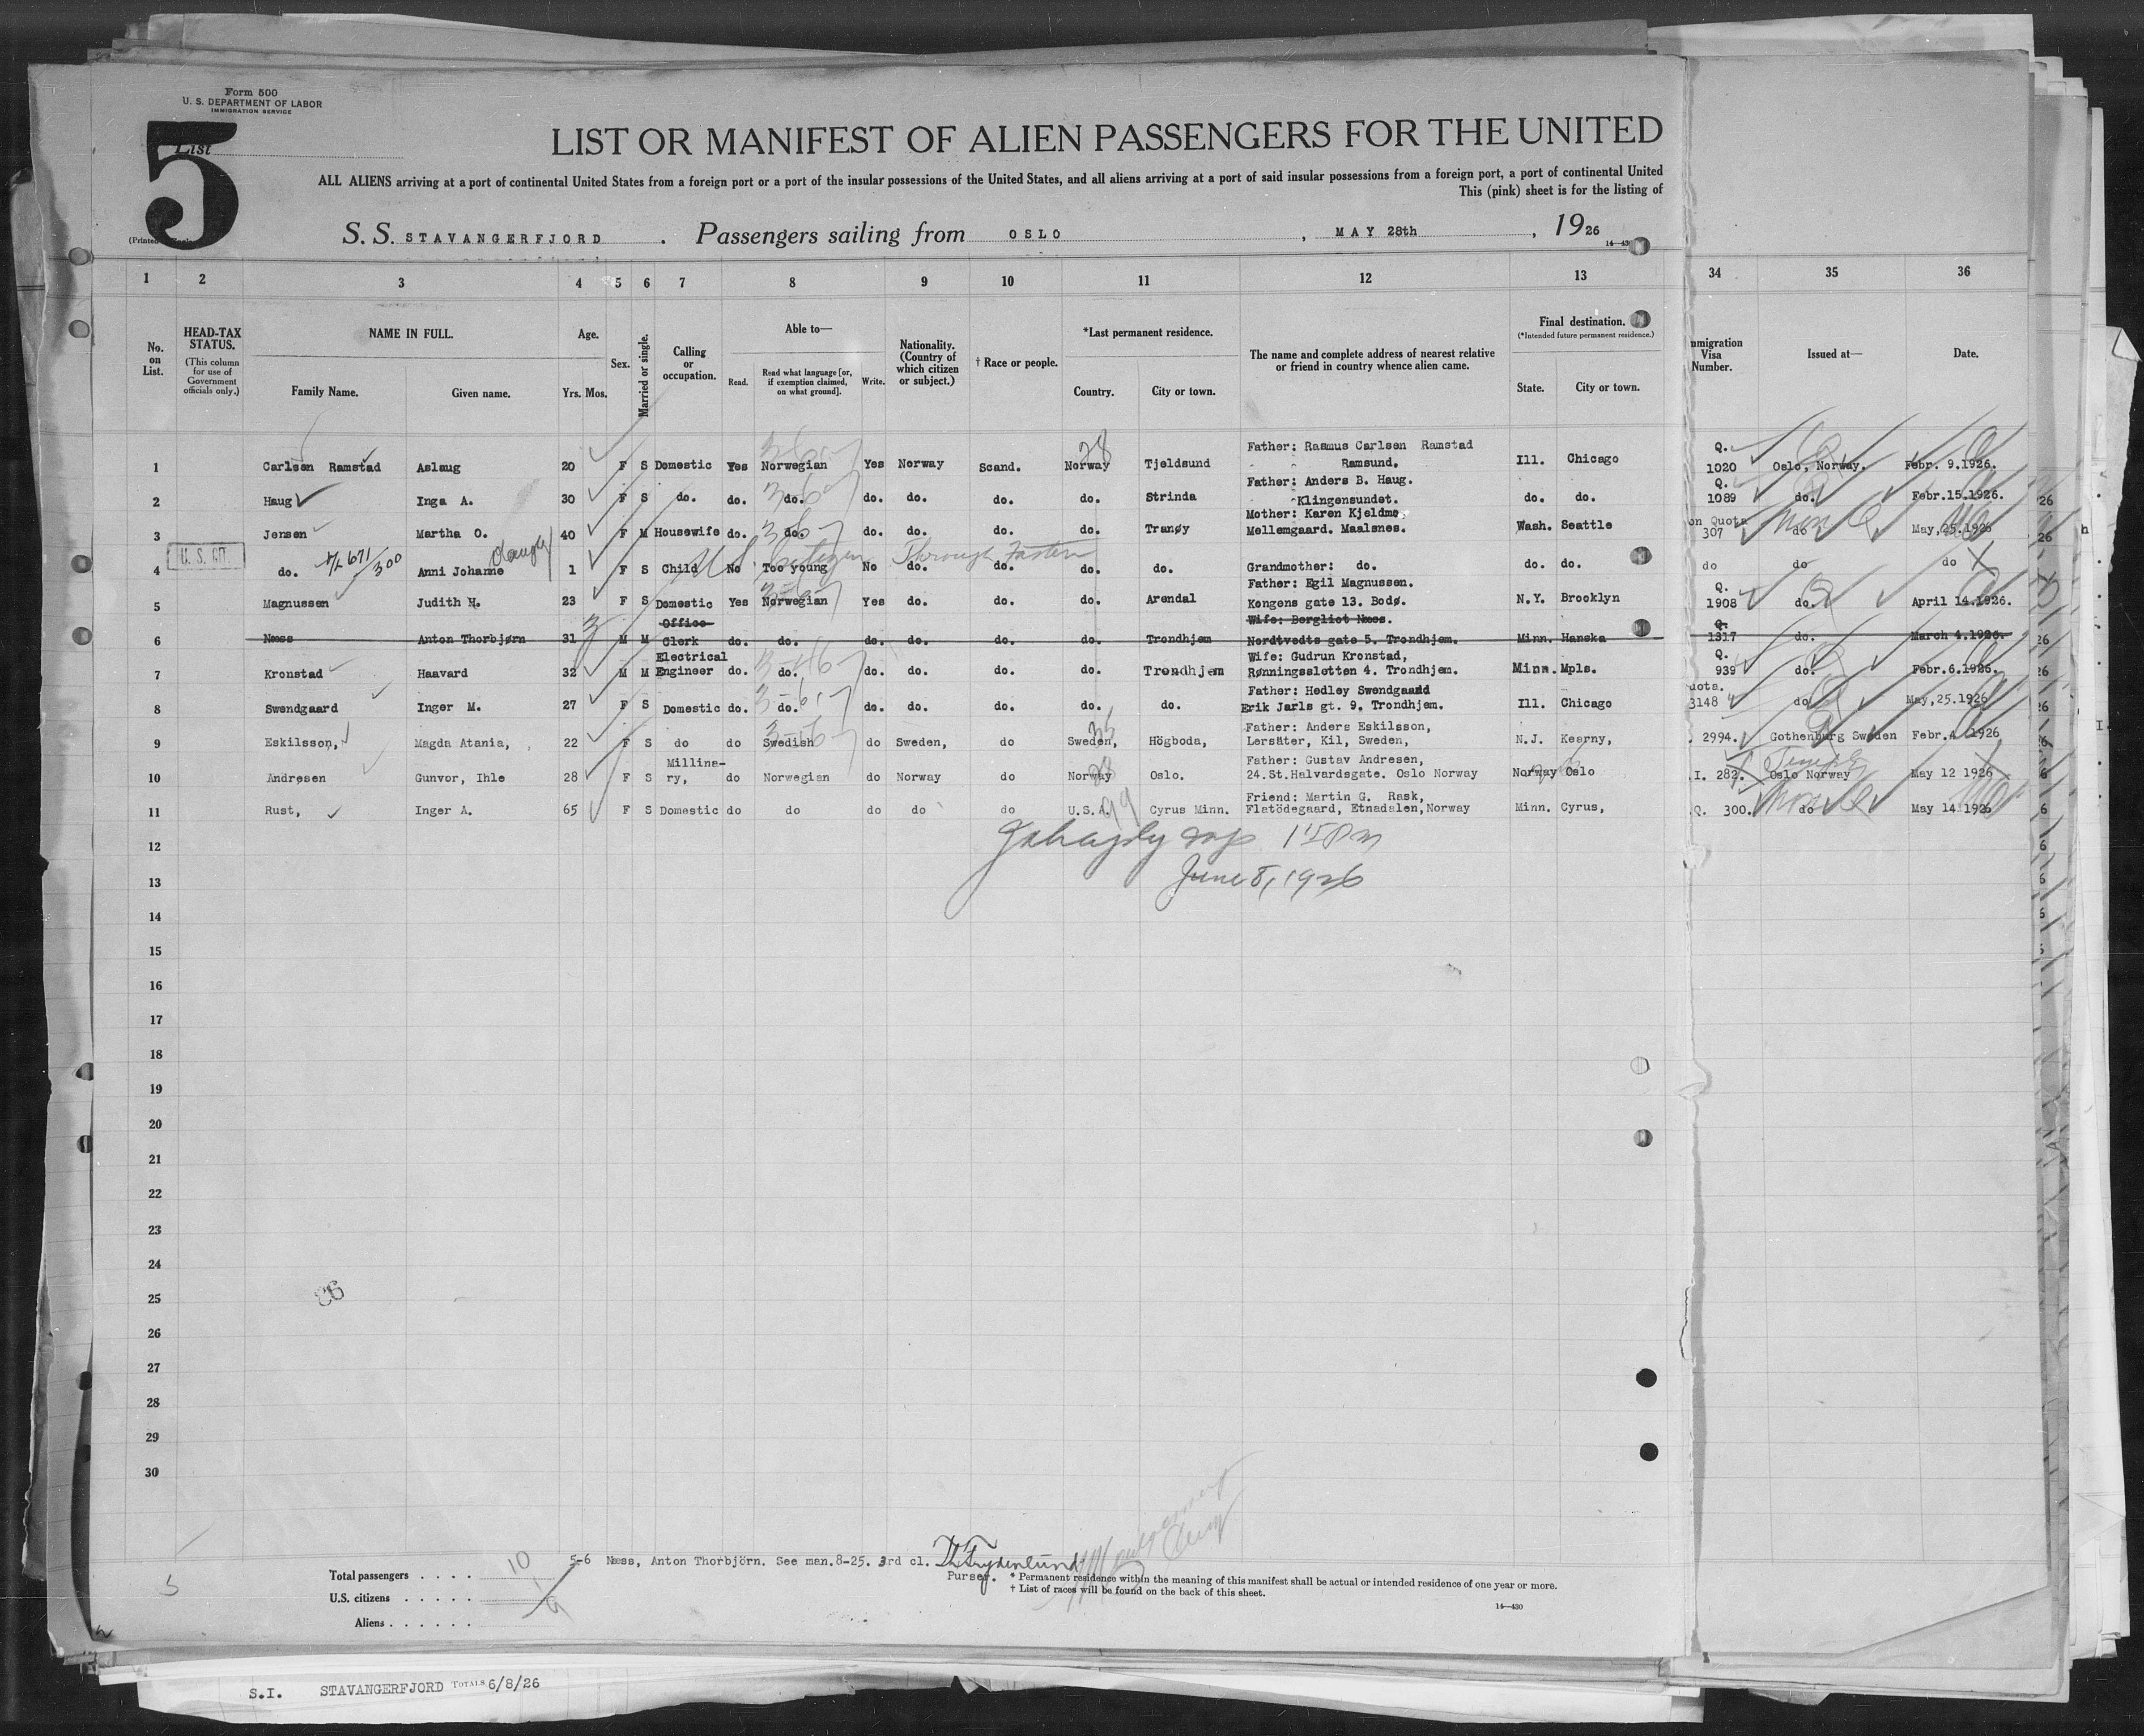 Form 500
U. S. DEPARTMENT OF LABOR
IMMIGRATION SERVICE
List 5
LIST OR MANIFEST OF ALIEN PASSENGERS FOR THE UNITED
ALL ALIENS arriving at a port of continental United States from a foreign port or a port of the insular possessions of the United States, and all aliens arriving at a port of said insular possessions from a foreign port, a port of continental United
This (pink) sheet is for the listing of
S. S. STAVANGERFJORD. Passengers sailing from OSLO, MAY 28th, 1926
1 2 3 4 5 6 7 8 9 10 11 12 13 34 35 36
No. on List.
HEAD-TAX STATUS.
(This column for use of Government officials only.)
NAME IN FULL.
Family Name. Given name.
Age.
Yrs. Mos.
Sex.
Married or single.
Calling or occupation.
Able to—
Read. Read what language [or, if exemption claimed, on what ground]. Write.
Nationality. (Country of which citizen or subject.)
† Race or people.
*Last permanent residence.
Country. City or town.
The name and complete address of nearest relative or friend in country whence alien came.
Final destination.
(*Intended future permanent residence.)
State. City or town.
mmigration Visa Number.
Issued at—
Date.
1 Carlsen Ramstad Aslaug 20 F S Domestic Yes Norwegian Yes Norway Scand. Norway Tjeldsund Father: Rasmus Carlsen Ramstad Ramsund. Ill. Chicago Q. 1020 Oslo, Norway. Febr. 9.1926.
2 Haug Inga A. 30 F S do. do. do. do. do. do. do. Strinda Father: Anders B. Haug. Klingensundet. do. do. Q. 1089 do. Febr.15.1926.
3 Jensen Martha O. 40 F M Housewife do. do. do. do. do. do. Tranøy Mother: Karen Kjeldmo. Mellemgaard. Maalsnes. Wash. Seattle on Quota 307 do May,25.1926
U. S. CIT.
4 do. Anni Johanne 1 F S Child No Too young No do. do. do. do. Grandmother: do. do. do. do do do
U.S. Citizen Through Father
5 Magnussen Judith H. 23 F S Domestic Yes Norwegian Yes do. do. do. Arendal Father: Egil Magnussen. Kongens gate 13. Bodø. N.Y. Brooklyn Q. 1908 do. April 14.1926.
6 Næss Anton Thorbjørn 31 M M Office Clerk do. do. do. do. do. do. Trondhjem Wife: Bergliot Næss. Nordtvedts gate 5. Trondhjem. Minn. Hanska Q. 1317 do. March 4.1926.
7 Kronstad Haavard 32 M M Electrical Engineer do. do. do. do. do. do. Trondhjem Wife: Gudrun Kronstad, Rønningsslotten 4. Trondhjem. Minn. Mpls. Q. 939 do. Febr.6.1926.
8 Swendgaard Inger M. 27 F S Domestic do. do. do. do. do. do. do. Father: Hedley Swendgaard Erik Jarls gt. 9. Trondhjem. Ill. Chicago uota. 3148 do May,25.1926
9 Eskilsson, Magda Atania, 22 F S do do Swedish do Sweden, do Sweden, Högboda, Father: Anders Eskilsson, Lersäter, Kil, Sweden, N.J. Kearny, 2994. Gothenburg Sweden Febr.4 1926
10 Andresen Gunvor, Ihle 28 F S Millinery, do Norwegian do Norway do Norway Oslo. Father: Gustav Andresen, 24.St.Halvardsgate. Oslo Norway Norway Oslo .I. 282. Oslo Norway May 12 1926
11 Rust, Inger A. 65 F S Domestic do do do do do U.S.A. Cyrus Minn. Friend: Martin G. Rask, Flatödegaard, Etnadalen,Norway Minn. Cyrus, .Q. 300. do May 14 1926
12
June 8, 1926
13
14
15
16
17
18
19
20
21
22
23
24
25
26
27
28
29
30
5-6 Næss, Anton Thorbjörn. See man.8-25. 3rd cl.
Purser.
Total passengers . . . . 10
U.S. citizens . . . . . .
Aliens . . . . . .
* Permanent residence within the meaning of this manifest shall be actual or intended residence of one year or more.
† List of races will be found on the back of this sheet.
14—430
S.I. STAVANGERFJORD TOTALS 6/8/26